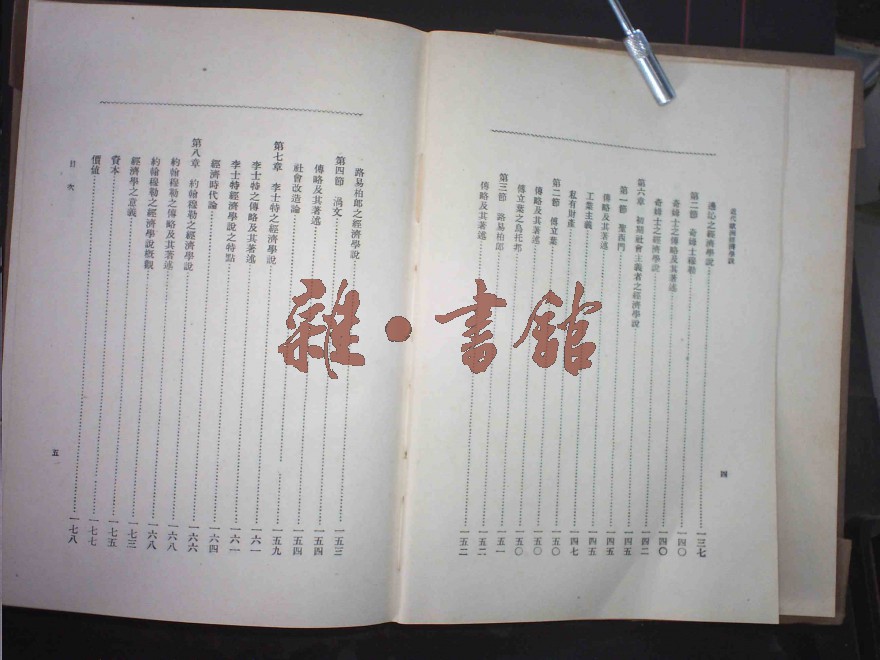 近代歐洲經濟學說
邊沁之經濟學說……一三七
第二節 奇姆士穆勒……一四〇
奇姆士之傳略及其著述……一四〇
奇姆士之經濟學說……一四二
第六章 初期社會主義者之經濟學說……一四五
第一節 聖西門……一四五
傳略及其著述……一四五
工業主義……一四七
私有財產……一五〇
第二節 傅立葉……一五〇
傳略及其著述……一五〇
傅立葉之烏托邦……一五一
第三節 路易柏郎……一五二
傳略及其著述……一五二
四
路易柏郎之經濟學說……一五三
第四節 渦文……一五四
傳略及其著述……一五四
社會改造論……一五九
第七章 李士特之經濟學說……一六一
李士特之傳略及其著述……一六一
李士特經濟學說之特點……一六四
經濟時代論……一六六
第八章 約翰穆勒之經濟學說……一六八
約翰穆勒之傳略及其著述……一六八
約翰穆勒之經濟學說概觀……一七三
經濟學之意義……一七五
資本……一七七
價值……一七八
目次
五
雜·書館